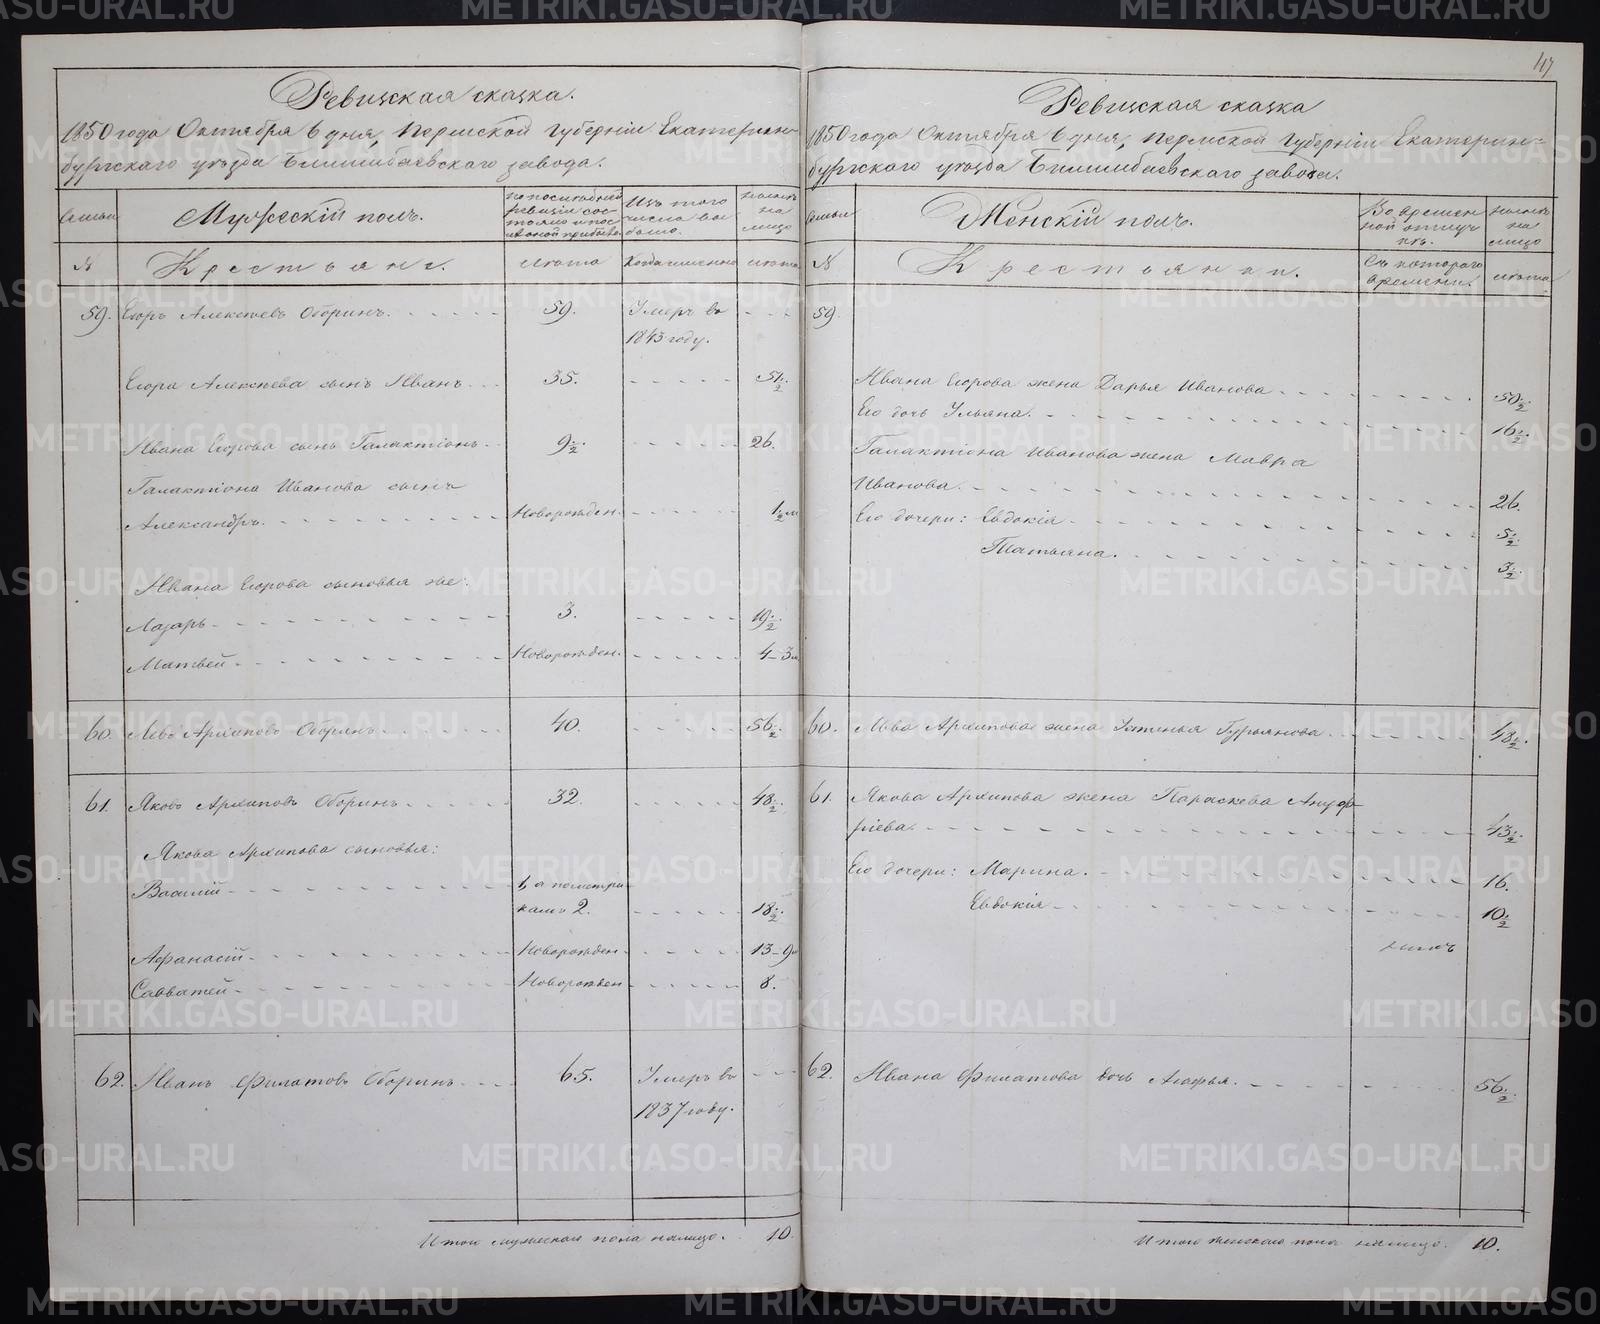 Ревизская сказка.
1850 года Октября 6 дня, Пермской Губерніи Екатерин-
бургскаго уѣзда Билимбаевскаго завода.
Семьи
Мужескій полъ.
По последней ревизіи состояло и после оной прибыло
Изъ того числа выбыло.
Нынѣ на лицо
№
Крестьяне.
лѣта
Когда именно
лѣта
59. Егоръ Алексѣевъ Оборинъ. 59. Умеръ въ
1843 году.
Егора Алексѣева сынъ Иванъ 35. 51 1/2
Ивана Егорова сынъ Галактіонъ 9 1/2. 26.
Галактіона Иванова сынъ
Александръ. Новорожден. 1/2 м
Ивана Егорова сыновья же:
Лазарь 3. 19 1/2
Матвей Новорожден. 4-3 м
60. Левъ Архиповъ Оборинъ 40. 56 1/2
61. Яковъ Архиповъ Оборинъ 32. 48 1/2
Якова Архипова сыновья:
Василій а по метри-
камъ 2. 18 1/2
Афанасій Новорожден. 13-9 м
Савватей Новорожден 8.
62. Иванъ Филатовъ Оборинъ 65. Умеръ въ
1837 году.
Итого мужескаго пола налицо. 10.
47
Ревизская сказка
1850 года Октября 6 дня, Пермской Губерніи Екатерин-
бургскаго уѣзда Билимбаевскаго завода.
Семьи
Женскій полъ.
Во времен
ной отлуч
кѣ.
Нынѣ на лицо
№
Крестьянки.
Съ котораго времени
лѣта
59.
Ивана Егорова жена Дарья Иванова 50 1/2
Его дочь Ульяна. 16 1/2
Галактіона Иванова жена Мавра
Иванова. 26.
Его дочери: Евдокія 5 1/2
Татьяна. 3 1/2
60. Льва Архипова жена Устинья Гурьянова. 48 1/2.
61. Якова Архипова жена Параскева Ануф-
ріева. 43 1/2.
Его дочери: Марина. 16.
Евдокія 10 1/2
62. Ивана Филатова дочь Агафья. 56 1/2
Итого женскаго пола налицо. 10.
METRIKI.GASO-URAL.RU